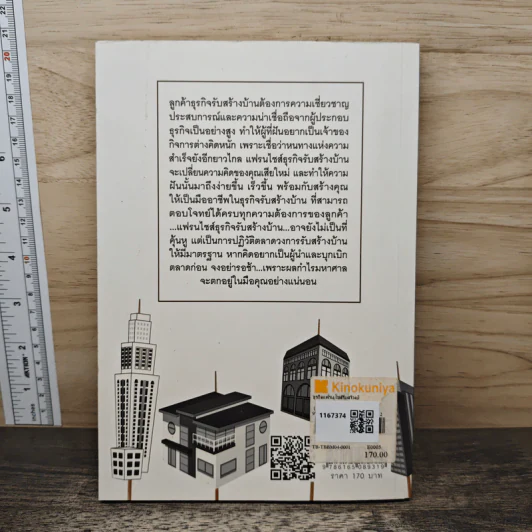 ลูกค้าธุรกิจรับสร้างบ้านต้องการความเชี่ยวชาญ
ประสบการณ์และความน่าเชื่อถือจากผู้ประกอบ
ธุรกิจเป็นอย่างสูง ทำให้ผู้ที่ฝันอยากเป็นเจ้าของ
กิจการต่างคิดหนัก เพราะเชื่อว่าหนทางแห่งความ
สำเร็จยังอีกยาวไกล แฟรนไชส์ธุรกิจรับสร้างบ้าน
จะเปลี่ยนความคิดของคุณเสียใหม่ และทำให้ความ
ฝันนั้นมาถึงง่ายขึ้น เร็วขึ้น พร้อมกับสร้างคุณ
ให้เป็นมืออาชีพในธุรกิจรับสร้างบ้าน ที่สามารถ
ตอบโจทย์ได้ครบทุกความต้องการของลูกค้า
...แฟรนไชส์ธุรกิจรับสร้างบ้าน...อาจยังไม่เป็นที่
คุ้นหู แต่เป็นการปฏิวัติตลาดวงการรับสร้างบ้าน
ให้มีมาตรฐาน หากคิดอยากเป็นผู้นำและบุกเบิก
ตลาดก่อน จงอย่ารอช้า...เพราะผลกำไรมหาศาล
จะตกอยู่ในมือคุณอย่างแน่นอน
Kinokuniya
1167374
170.00
9 786165 089319
ราคา 170 บาท